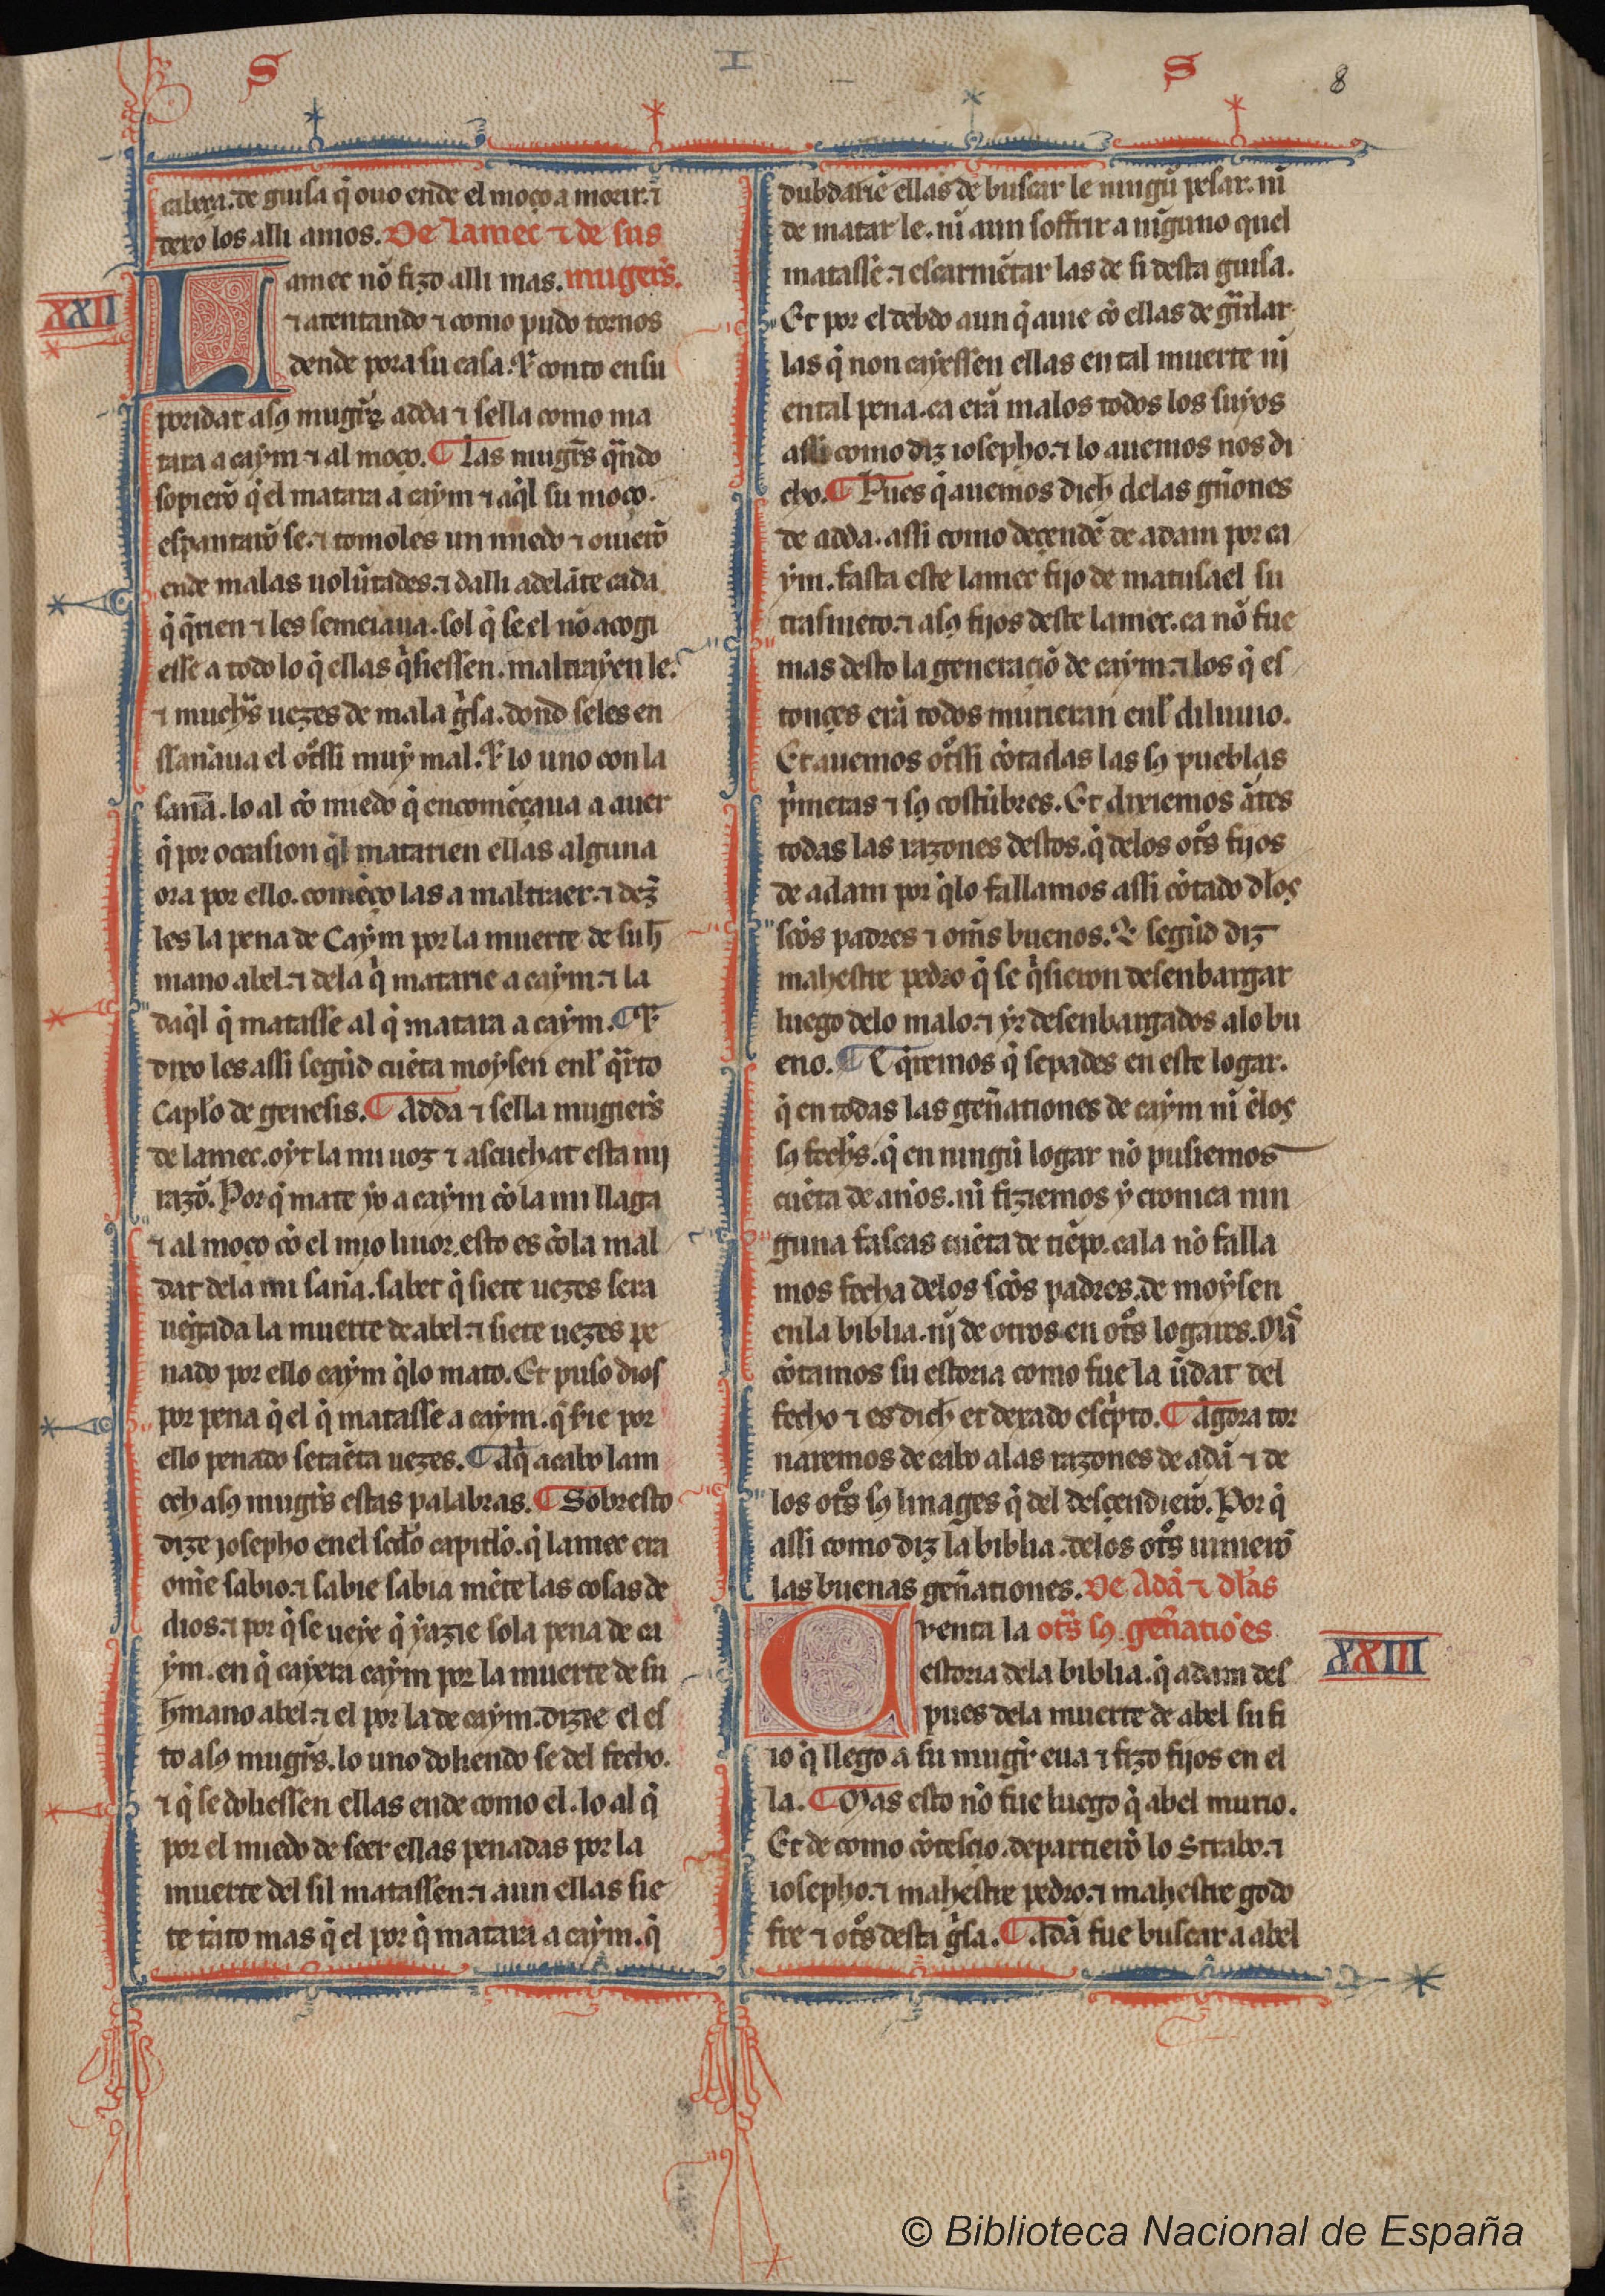 S I S 8
cabeça. de guisa q̃ ouo ende el moço a morir. ⁊
dexo los alli amos. De lamec ⁊ de sus
XXII
Lamec nõ fizo alli mas. mugeres.
⁊ atentando ⁊ como pudo tornos
dende pora su casa. ⁊ conto en su
poridat a sꝯ mugr̃s adda ⁊ sella como ma
tara a caẏm ⁊ al moço. ¶ Las mugr̃s qũdo
sopierõ q̃ el matara a caẏm ⁊ aq̃l su moço.
espantarõ se. ⁊ tomoles un miedo ⁊ ouierõ
ende malas uolũtades. ⁊ dalli adelãte cada
q̃ q̃rien ⁊ les semeiaua. sol q̃ se el nõ acogi
esse a todo lo q̃ ellas q̃siessen. maltraẏen le.
⁊ muchͣs uezes de mala gͥsa. dond seles en
sanaua el otͦssi muẏ mal. ⁊ lo uno con la
sanã. lo al cõ miedo q̃ encomẽçaua a auer
q̃ por occasion q̃l matarien ellas alguna
ora por ello. comẽço las a maltraer. ⁊ dez̃
les la pena de Caẏm por la muerte de su h̃
mano abel. ⁊ dela q̃ matarie a caẏm. ⁊ la
daq̃l q̃ matasse al q̃ matara a caẏm. ¶ ⁊
dixo les assi segũd cuẽta moẏsen enl̃ qͣrto
Capl̃o de genesis. ¶ Adda ⁊ sella mugier̃s
de lamec. oyt la mi uoz ⁊ ascuchat esta mj
razõ. Por q̃ mate ẏo a caẏm cõ la mi llaga
⁊ al moço cõ el mio liuor. esto es cõ la mal
dat dela mi sanã. sabet q̃ siete uezes sera
uẽgada la muerte de abel. ⁊ siete uezes pe
nado por ello caẏm q̃lo mato. Et puso dios
por pena q̃ el q̃ matasse a caẏm. q̃ fue por
ello penado setaẽta uezes. ¶ Aq̃ acabo lam
ech a sꝯ mugr̃s estas palabras. ¶ Sobresto
dize josepho enel scd̃o capitl̃o. q̃ lamec era
om̃e sabio. ⁊ sabie sabia mẽte las cosas de
dios. ⁊ por q̃ se ueẏe q̃ ẏazie so la pena de ca
ẏm. en q̃ cayera caẏm por la muerte de su
h̃mano abel. ⁊ el por la de caẏm. dizie el es
to a sꝯ mugr̃s. lo uno doliendo se del fecho.
⁊ q̃ se doliessen ellas ende como el. lo al q̃
por el miedo de seer ellas penadas por la
muerte del sil matassen. ⁊ aun ellas sie
te tãto mas q̃ el por q̃ matara a caẏm. q̃
dubdariẽ ellas de buscar le ningũ pesar. nĩ
de matar le. nĩ aun soffrir a nĩguno quel
matasse. ⁊ escarmẽtar las de si desta guisa.
Et por el debdo aun q̃ auie cõ ellas de gͣrdar
las q̃ non caẏessen ellas en tal muerte nj
en tal pena. ca erã malos todos los suẏos
assi como diz iosepho. ⁊ lo auemos nos di
cho. ¶ Pues q̃ auemos dich̃ delas gñones
de adda. assi como deçendẽ de adam por ca
ẏm. fasta este lamec fijo de matusael su
trasnieto. ⁊ a sꝯ fijos deste lamec. ca nõ fue
mas desto la generaçiõ de caẏm. ⁊ los q̃ es
tonçes erã todos murieran enl̃ diluuio.
Et auemos otͦssi cõtadas las sꝯ pueblas
pͥmeras ⁊ sꝯ costũbres. Et dixiemos ãtes
todas las razones destos. q̃ delos otͦs fijos
de adam por q̃lo fallamos assi cõtado dl̃os
sc̃os padres ⁊ om̃s buenos. ⁊ segũd diz
mahestre pedro q̃ se q̃sieron desenbargar
luego delo malo. ⁊ ẏr desenbargados alo bu
eno. ¶ ⁊ q̃remos q̃ sepades en este logar.
q̃ en todas las geñationes de caẏm nĩ ẽlos
sꝯ fechͦs. q̃ en ningũ logar nõ pusiemos
cuẽta de anõs. nĩ fiziemos ẏ cronica nin
guna fascas cuẽta de tiẽpo. ca la nõ falla
mos fecha delos sc̃os padres. de moẏsen
enla biblia. nj de otros en otͦs logares. Mãs
cõtamos su estoria como fue la ũdat del
fecho ⁊ es dich̃ et dexado escpͥto. ¶ Agora tor
naremos de cabo alas razones de adã ⁊ de
los otͦs sꝯ linages q̃ del desçendierõ. Por q̃
assi como diz la biblia. delos otͦs uinierõ
las buenas geñationes. De Adã ⁊ dl̃as
Cuenta la otͣs sꝯ geñatiões
XXIII
estoria dela biblia. q̃ adam des
pues dela muerte de abel su fi
io q̃ llego a su mugr̃ eua ⁊ fizo fijos en el
la. ¶ Mas esto nõ fue luego q̃ abel murio.
Et de como cõtesçio. departierõ lo Strabo. ⁊
iosepho. ⁊ mahestre pedro. ⁊ mahestre godo
fre ⁊ otͦs desta gͥsa. ¶ Adã fue buscar a abel
© Biblioteca Nacional de España